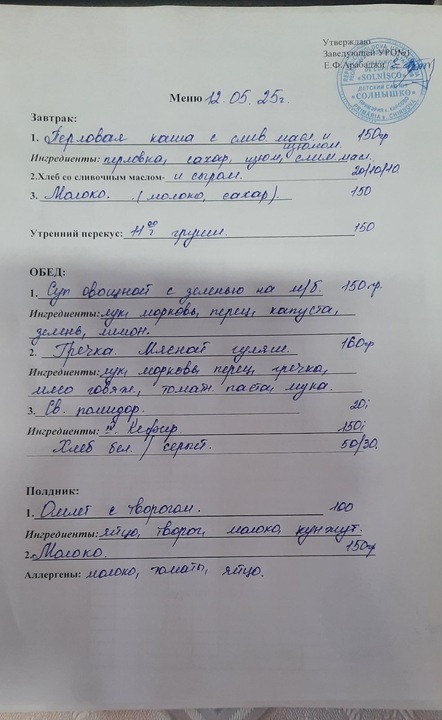 Утверждаю
Заведующей УРО№1
Е.Ф.Арабаджи
«SOLNÎȘCO»
ДЕТСКИЙ САД
«СОЛНЫШКО»
Меню 12.05.25г.
Завтрак:
1. Перловая каша с слив. масл. и изюмом. 150гр
Ингредиенты: перловка, сахар, изюм, слив масл.
2.Хлеб со сливочным маслом- и сыром. 20/10/10.
3. Молоко. (молоко, сахар) 150
Утренний перекус: 11⁰⁰ груши. 150
ОБЕД:
1. Суп овощной с зеленью на м/б. 150гр.
Ингредиенты: лук, морковь, перец, капуста,
зелень, лимон.
2. Гречка. Мясной гуляш. 160гр
Ингредиенты: лук, морковь, перец, гречка,
мясо говяж., томат. паста, мука.
3. Св. помидор. 20г
Ингредиенты: Кефир. 150г
Хлеб бел. / серый. 50/30.
Полдник:
1. Омлет с творогом. 100
Ингредиенты: яйцо, творог, молоко, кунжут.
2. Молоко. 150гр
Аллергены: молоко, томаты, яйцо.